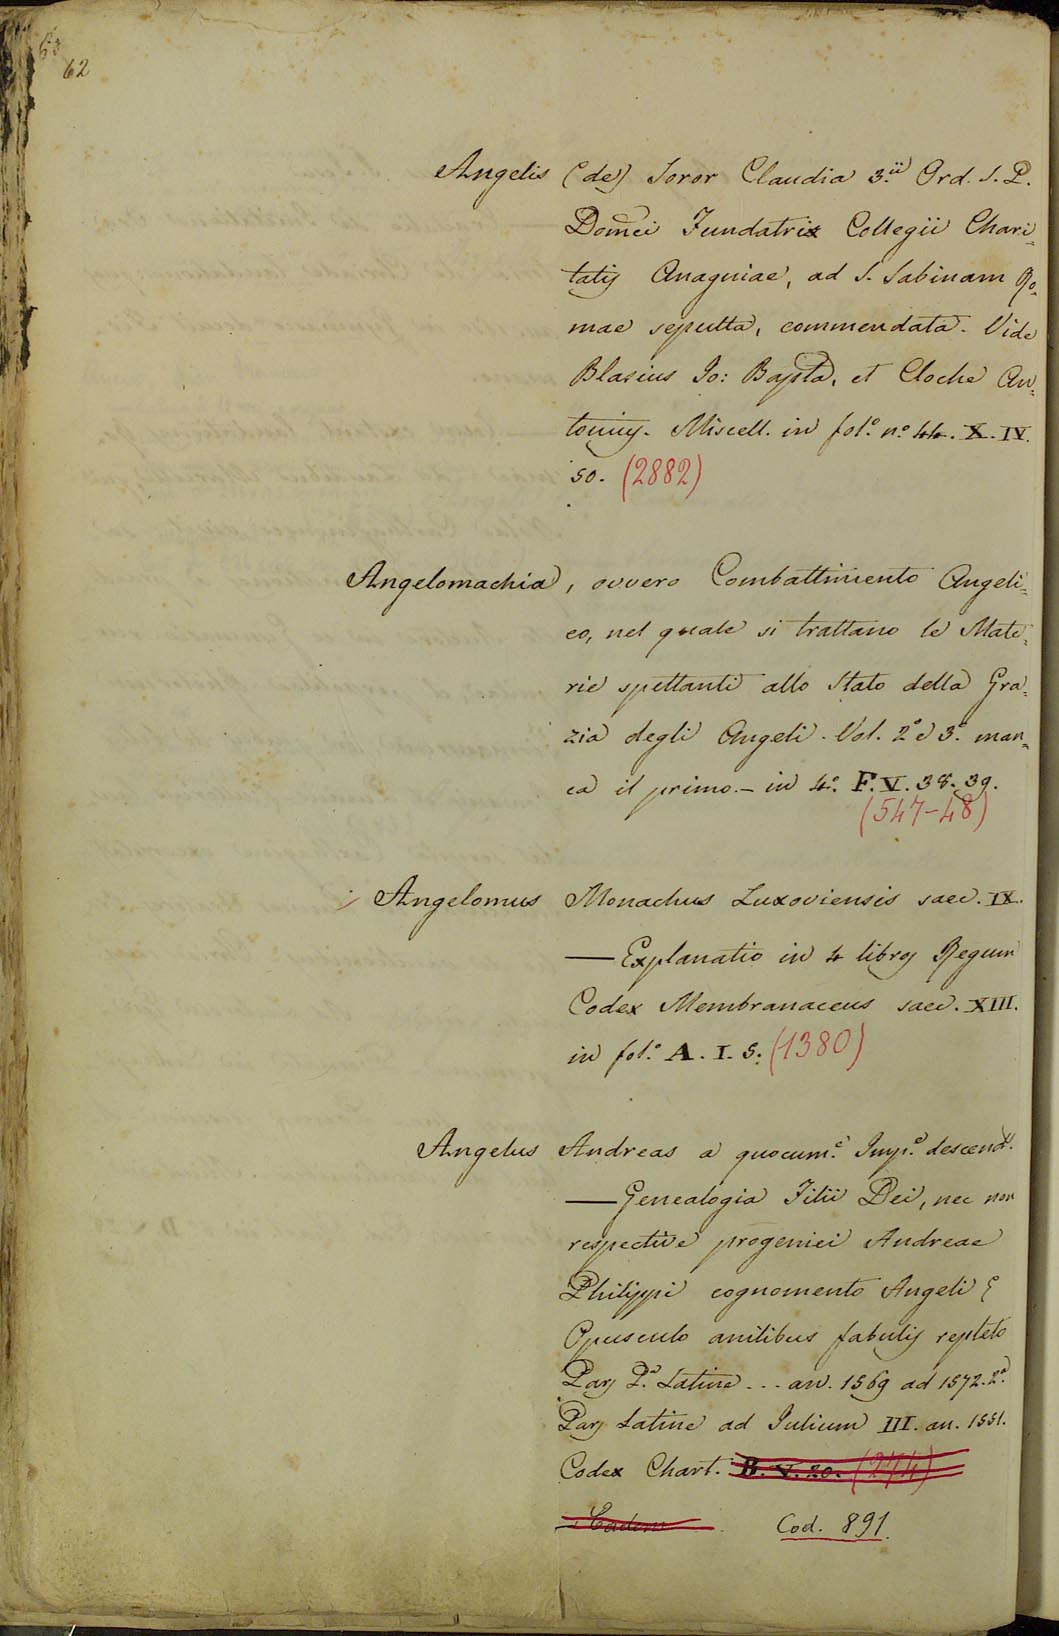 62
Angelis (de) Soror Claudia 3.ii Ord. S. P.
Domci Fundatrix Collegii Chari=
tatis Anagniae, ad S. Sabinam Ro=
mae sepulta, commendata. Vide
Blasius Jo: Bapta, et Cloche An=
tonius. Miscell. in fol.o n.o 44. X. IV.
50. (2882)
Angelomachia, ovvero Combattimento Angeli=
co, nel quale si trattano le Mate=
rie spettanti allo Stato della Gra=
zia degli Angeli. Vol. 2.o e 3.o man=
ca il primo. — in 4.o F. V. 38. 39.
(547-48)
Angelomus Monachus Luxoviensis saec. IX.
— Explanatio in 4 libros Regum
Codex Membranaceus saec. XIII.
in fol.o A. I. 5. (1380)
Angelus Andreas a quocum.e Imp.e descend.
— Genealogia Filii Dei, nec non
respective progeniei Andreae
Philippi cognomento Angeli
Opusculo anilibus fabulis repleto
Pars P.a Latine ... an. 1569 ad 1572. 2.a
Pars Latine ad Iulium III. an. 1551.
Codex Chart. B. V. 20. (274)
Eadem Cod. 891.